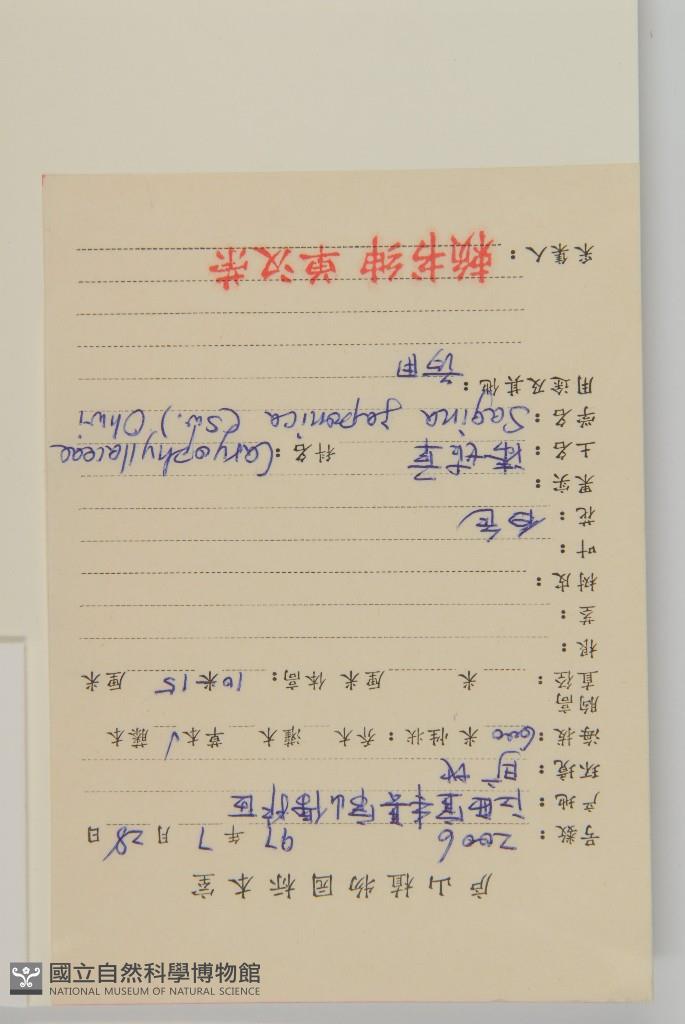 庐山植物园标本室
号数：2006 97年7月28日
产地：江西宜丰县官山保护区
环境：旷地
海拔：600米 性状：乔木 灌木 草本√ 藤本
胸高直径： 米 厘米 体高：10米15厘米
根：
茎：
树皮：
叶：
花：白色
果实：
土名：漆姑草 科名：Caryophyllaceae
学名：Sagina japonica (Sw.) Ohwi
用途及其他：
药用
采集人：赖书绅 单汉荣
國立自然科學博物館
NATIONAL MUSEUM OF NATURAL SCIENCE